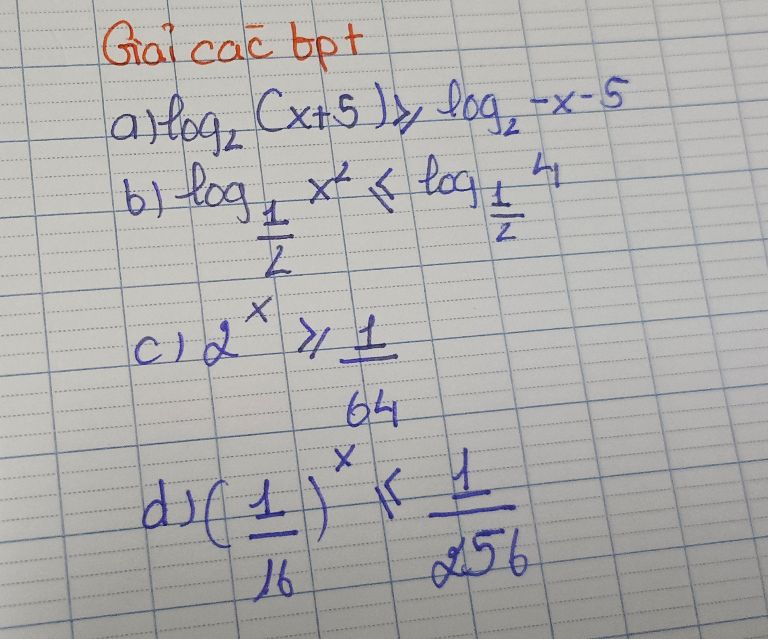 Giải các bpt
a) log₂ (x+5) ⩾ log₂ -x-5
b) log_{1/2} x² ⩽ log_{1/2} 4
c) 2^x ⩾ 1/64
d) (1/16)^x ⩽ 1/256